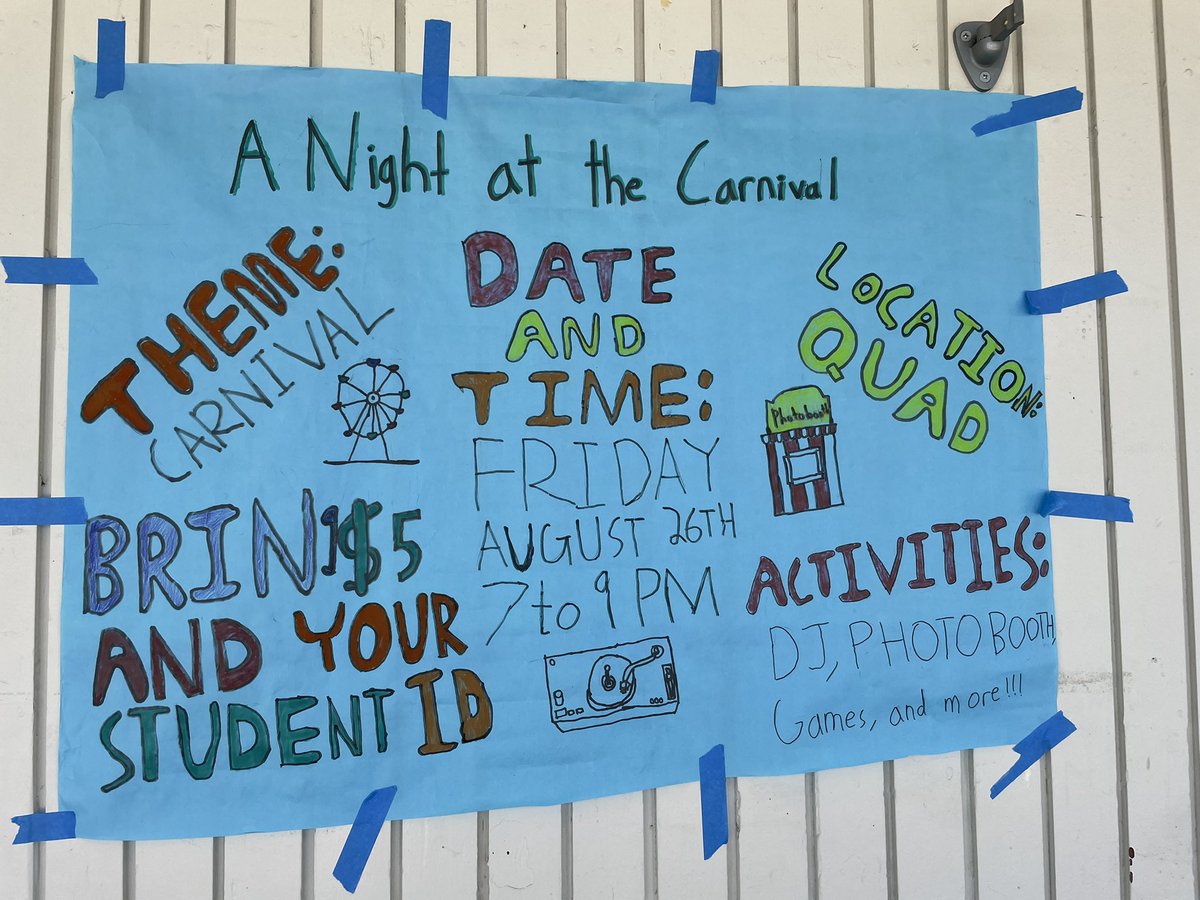 A Night at the Carnival
THEME:
CARNIVAL
BRING $5
AND YOUR
STUDENT ID
DATE
AND
TIME:
FRIDAY
AUGUST 26TH
7 to 9 PM
LOCATION:
QUAD
Photobooth
ACTIVITIES:
DJ, PHOTO BOOTH,
Games, and more!!!